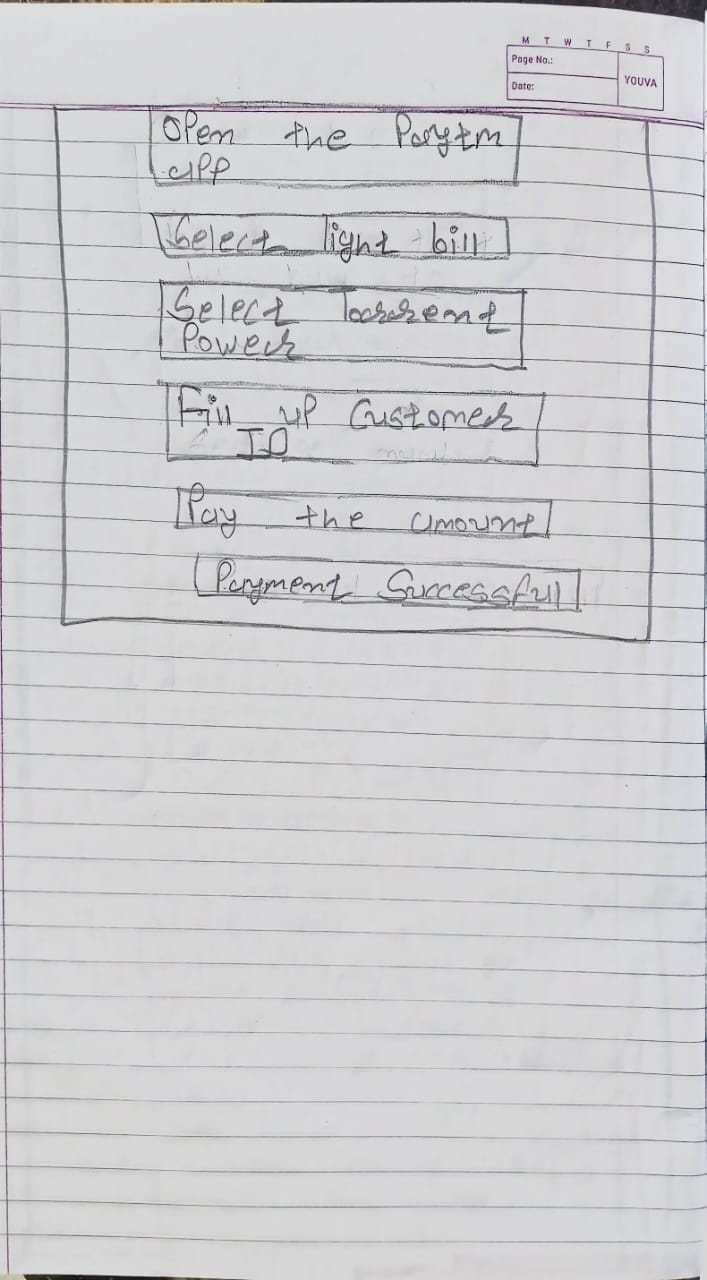 M T W T F S S
Page No.:
Date:
YOUVA
Open the Paytm
app
Select light bill
Select Torrent
Power
Fill up Customer
ID
Pay the amount
Payment Successful